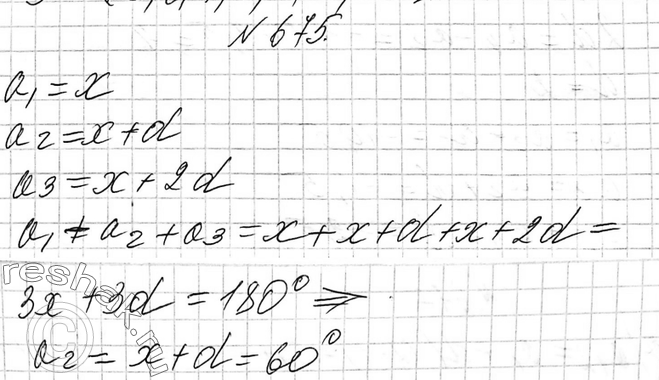 № 675.
a₁ = x
a₂ = x + d
a₃ = x + 2d
a₁ + a₂ + a₃ = x + x + d + x + 2d =
3x + 3d = 180° ⇒
a₂ = x + d = 60°
reshak.ru